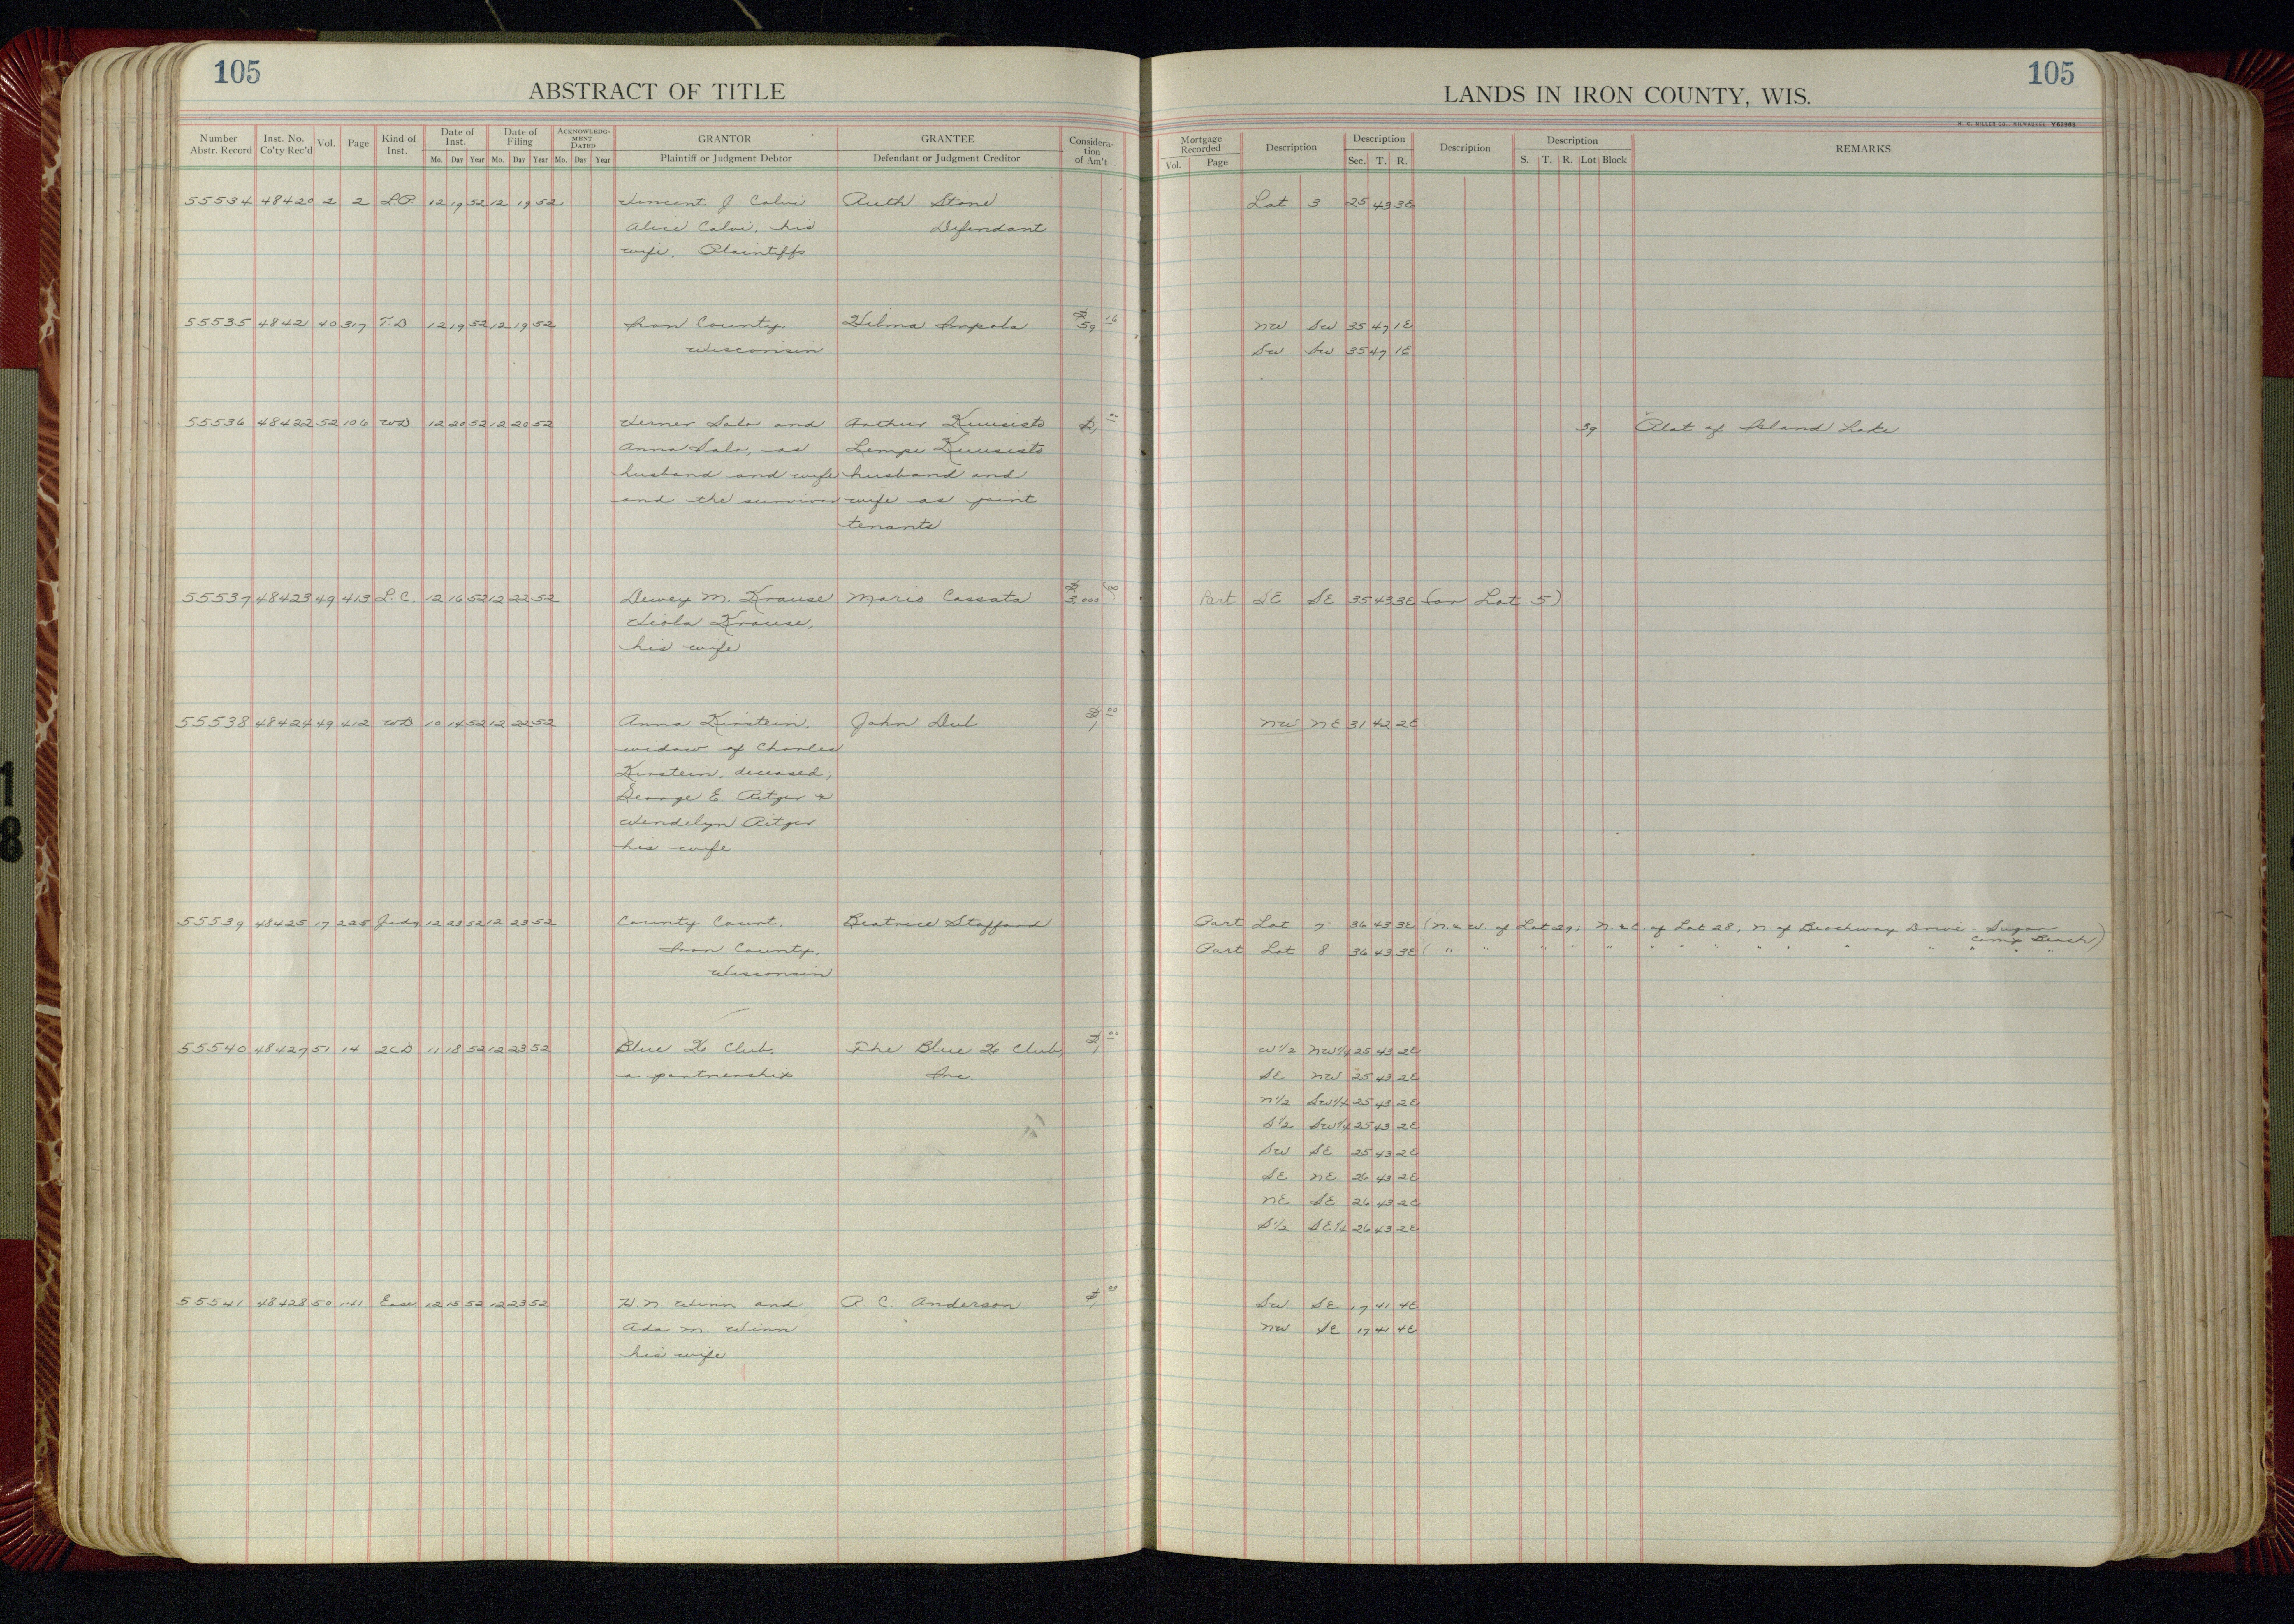 105
ABSTRACT OF TITLE
Number Abstr. Record Inst. No. Co'ty Rec'd Vol. Page Kind of Inst. Date of Inst. Date of Filing ACKNOWLEDG-MENT DATED GRANTOR GRANTEE Considera-tion of Am't
Mo. Day Year Mo. Day Year Mo. Day Year Plaintiff or Judgment Debtor Defendant or Judgment Creditor
55534 48420 2 2 L.P. 12 19 52 12 19 52 Vincent J. Calvi Ruth Stone
Alice Calvi, his Defendant
wife, Plaintiffs
55535 48421 40 317 T.D 12 19 52 12 19 52 Iron County, Hilma Impola $59 16
Wisconsin
55536 48422 52 106 WD 12 20 52 12 20 52 Verner Salo and Arthur Kuusisto $1 00
Anna Salo, as Lempi Kuusisto
husband and wife husband and
and the survivor wife as joint
tenants
55537 48423 49 413 L.C. 12 16 52 12 22 52 Dewey M. Krause Mario Cassata $3,000 00
Viola Krause,
his wife
55538 48424 49 412 WD 10 14 52 12 22 52 Anna Kirstein, John Dul $1 00
widow of Charles
Kirstein, deceased;
George E. Ritger &
Wendelyn Ritger
his wife
55539 48425 17 225 Judg 12 23 52 12 23 52 County Court, Beatrice Stafford
Iron County,
Wisconsin
55540 48427 51 14 2CD 11 18 52 12 23 52 Blue Club, The Blue Club, $1 00
a partnership Inc.
55541 48428 50 141 Ease. 12 15 52 12 23 52 H. N. Winn and R. C. Anderson $1 00
Ada M. Winn
his wife
105
LANDS IN IRON COUNTY, WIS.
H. C. MILLER CO., MILWAUKEE Y62963
Mortgage Recorded Description Description Description Description REMARKS
Vol. Page Sec. T. R. S. T. R. Lot Block
Lot 3 25 43 3E
NW SW 35 47 1E
SW SW 35 47 1E
39 Plat of Island Lake
Part SE SE 35 43 3E (or Lot 5)
NW NE 31 42 2E
Part Lot 7 36 43 3E (N. & W. of Lot 29; N. & E. of Lot 28; N. of Beachway Drive - Sugar
Camp Beach)
Part Lot 8 36 43 3E ( " " " " " " " " " " " " " " " )
W 1/2 NW 1/4 25 43 2E
SE NW 25 43 2E
N 1/2 SW 1/4 25 43 2E
S 1/2 SW 1/4 25 43 2E
SW SE 25 43 2E
SE NE 26 43 2E
NE SE 26 43 2E
S 1/2 SE 1/4 26 43 2E
SW SE 17 41 4E
NW SE 17 41 4E
18